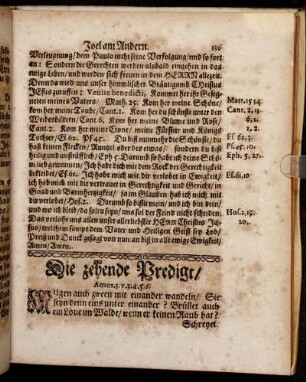 Joel am Andern. 136
Verleugnung / dem Paulo nicht seine Verfolgung / und so fort
an : Sondern die Gerechten werden alsbald eingehen in das
ewige Leben / und werden sich freuen in dem HERRN allezeit.
Denn da wird uns unser Himmlischer Bräutigam Christus
JEsus zuruffen : Venite benedicti, Kommet her ihr Geseg-
neten meines Vaters. Math. 25. Kom her meine Schöne /
kom her meine Taube / Cant. 2. Kom her du schönste unter den
Weibesbildern / Cant. 6. Kom her meine Blum und Rose /
Cant. 2. Kom her meine Crone / meine Fürstin und Königs
Tochter / Esa. Ps. 45. Du bist nunmehr die Schönste / du
hast keinen Flecken / Runtzel oder des etwas / sondern du bist hei-
lig und unsträfflich / Eph. 5. Darumb so habe ich deine Schö-
ne lieb gewonnen / ich habe dich mit dem Rock der Gerechtigkeit
bekleidet / Es. 61. Ich habe mich mit dir verlobet in Ewigkeit /
ich hab mich mit dir vertrauet in Gerechtigkeit und Gericht / in
Gnad und Barmhertzigkeit / ja im Glauben hab ich mich mit
dir verlobet / Hos. 2. Darumb so bist du mein / und ich bin dein /
und wo ich bleib / da soltu seyn / uns sol der Feind nicht scheiden.
Das verleyhe uns allen unser allerliebster HErr Christus JE-
sus / welchem sampt dem Vater und Heiligen Geist sey Lob /
Preiß und Danck gesagt von nun an biß in alle ewige Ewigkeit /
Amen / Amen.
Matt. 25. 34.
Cant. 2, 13.
6, 1.
2, 2.
Ps. 45, 10.
Eph. 5. 27.
Es. 61, 10
Hos. 2, 19.
20.
Die zehende Predigt /
Amos. 3. v. 3. 4. 5. 6.
MUgen auch zween mit einander wandeln / Sie
seyn denn eins unter einander ? Brüllet auch
ein Löue im Walde / wenn er keinen Raub hat ?
Schreyet